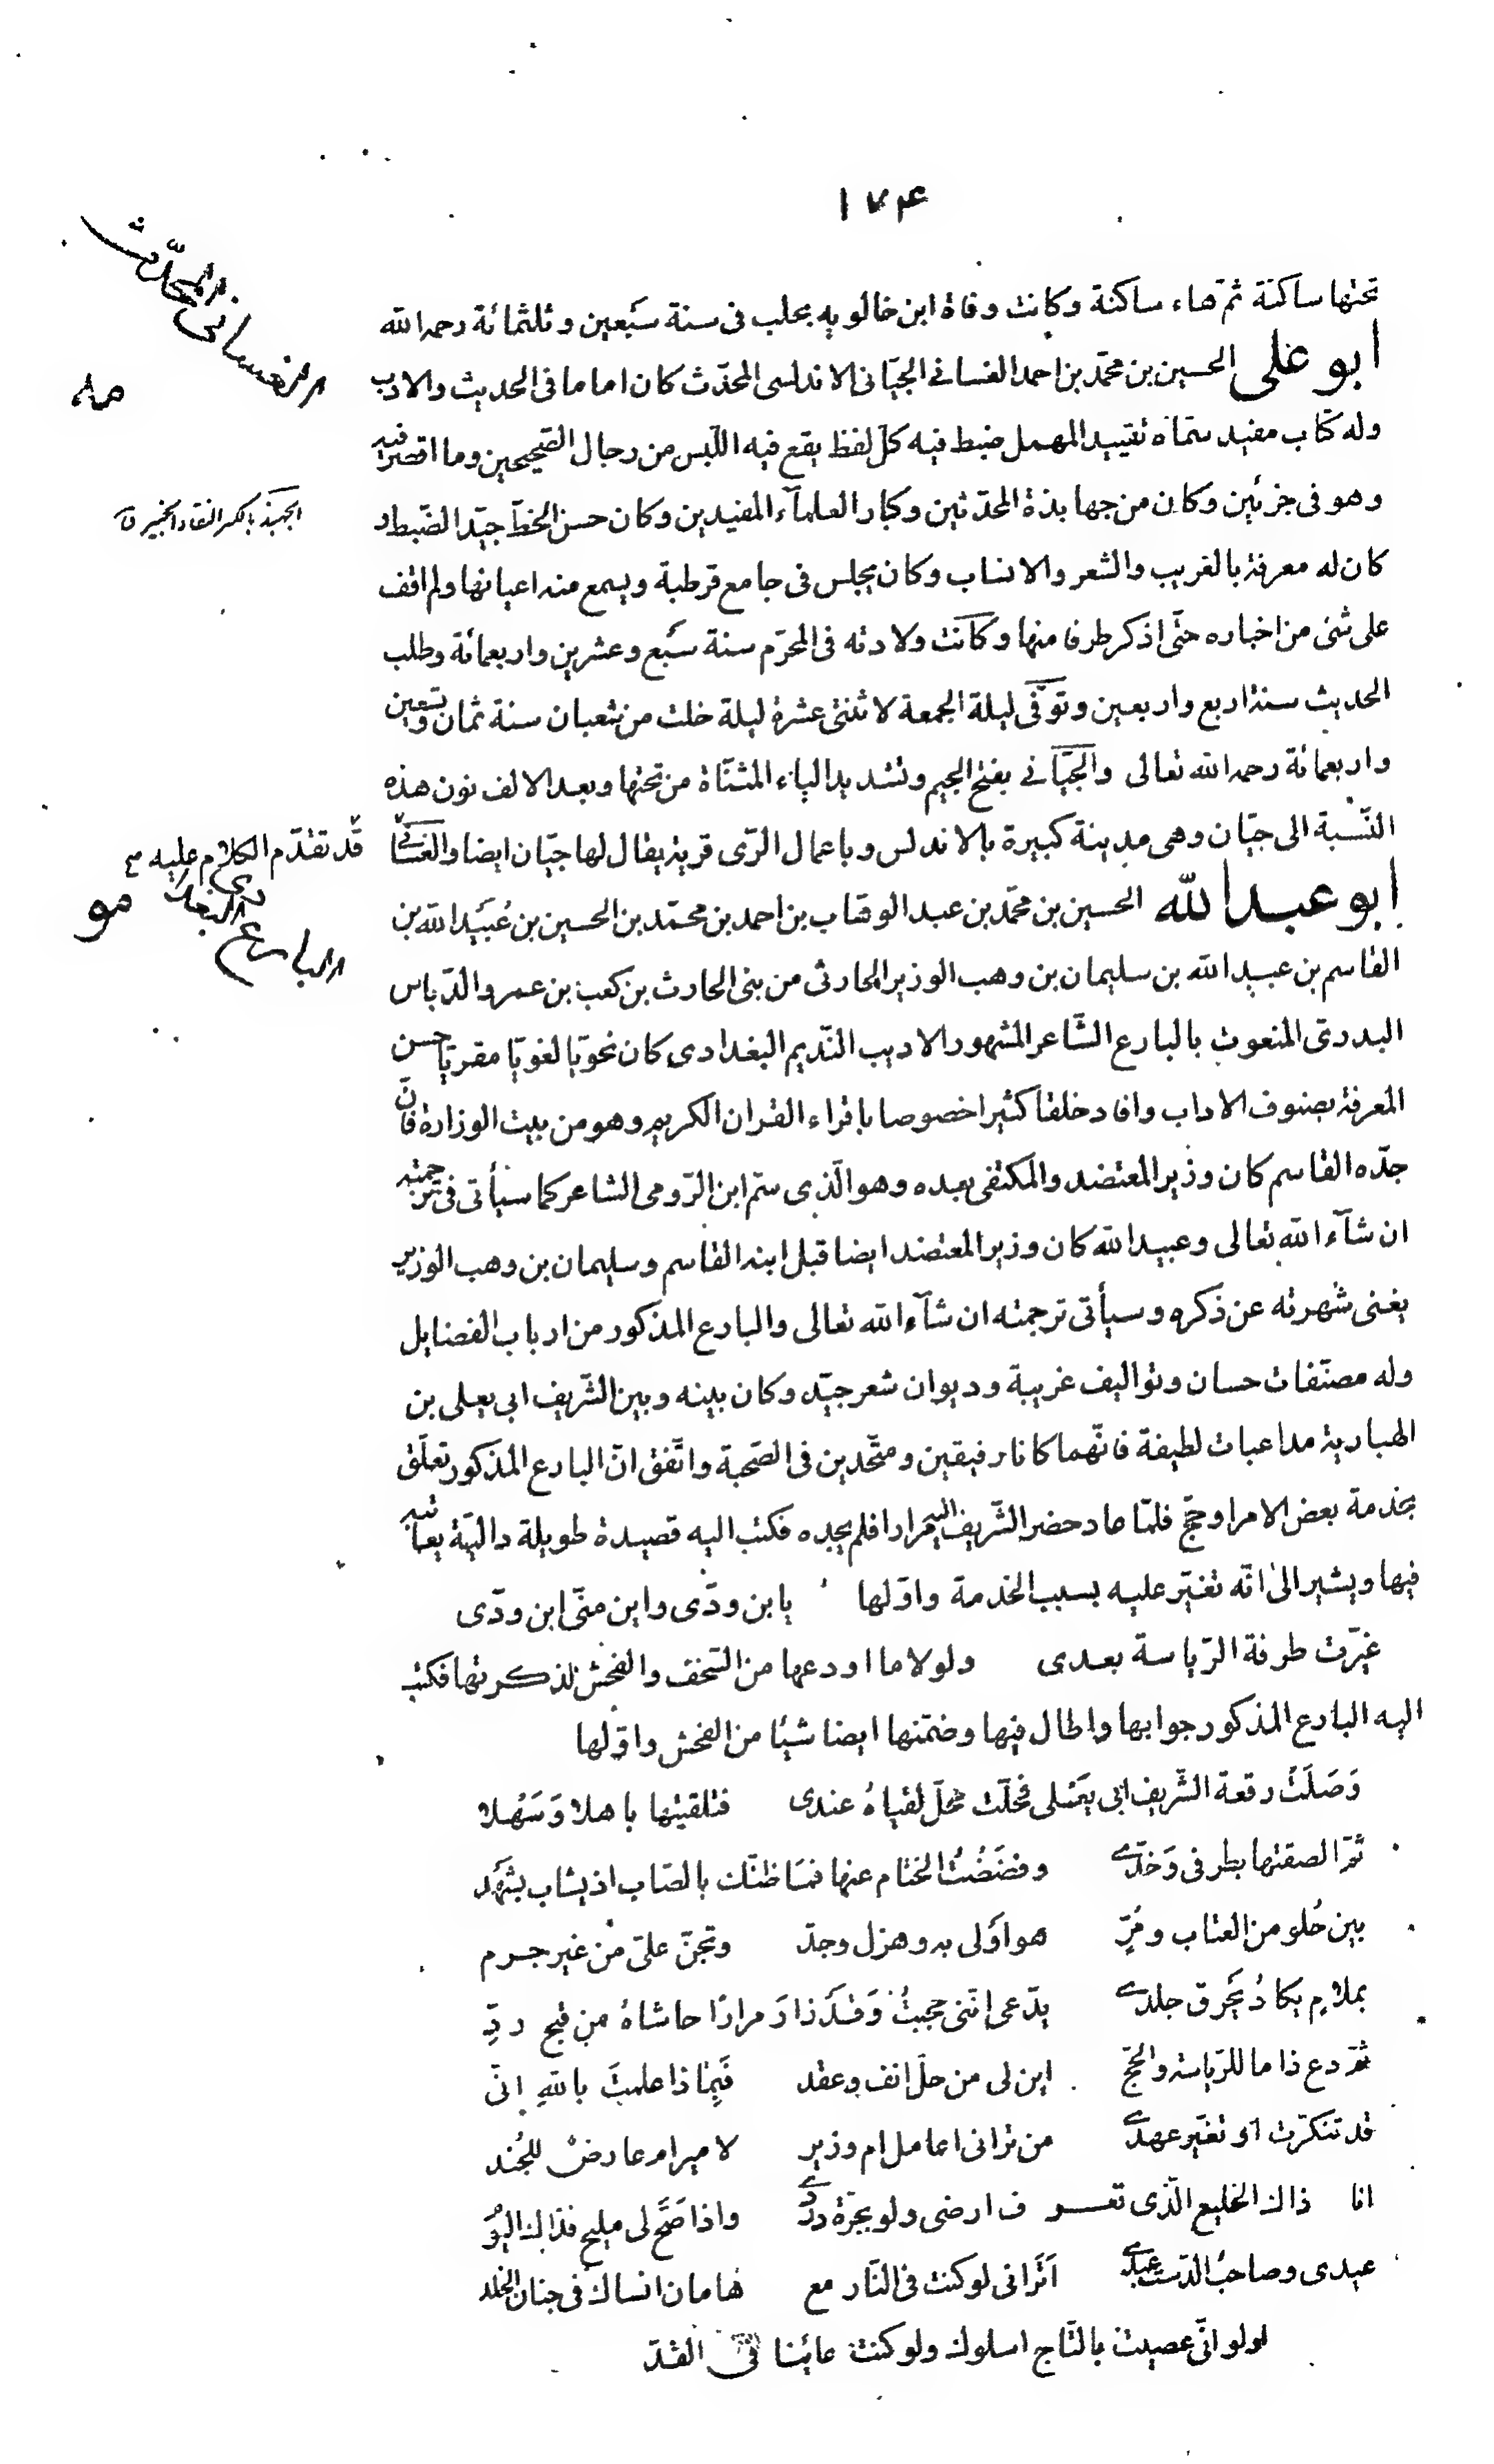 ١٧٤
تحتها ساكنة ثم هاء ساكنة وكانت وفاة ابن خالويه بحلب فى سنة سبعين وثلثمائة رحمه الله
الغسانى المحدّث
ابو على الحسين بن محمّد بن احمد الغسانے الجيّانى الاندلسى المحدّث كان اماما فى الحديث والادب
وله كتاب مفيد سمّاه تقييد المهمل ضبط فيه كلّ لفظ يقع فيه اللّبس من رجال الصّحيحين وما اقصر فيه
وهو فى جزئين وكان من جهابذة المحدّثين وكبار العلمآء المفيدين وكان حسن الخطّ جيّد الضّبط و
الجهبذ بالكسر النقاد الخبير ق
كان له معرفة بالغريب والشعر والانساب وكان يجلس فى جامع قرطبة ويسمع منه اعيانها ولم اقف
على شئ من اخباره حتّى اذكر طرفا منها وكانت ولادته فى المحرّم سنة سَبع وعشرين واربعمائة وطلب
الحديث سنة اربع واربعين وتوفّى ليلة الجمعة لاثنتى عشرة ليلة خلت من شعبان سنة ثمان وتسعين
واربعمائة رحمه الله تعالى والجيّانے بفتح الجيم وتشديد الياء المثنّاة من تحتها وبعد الالف نون هذه
النّسبة الى جيّان وهى مدينة كبيرة بالاندلس وباعمال الرّى قرية يقال لها جيّان ايضا والغسّانے
قد تقدّم الكلام عليه
البارع البغدادى
ابو عبد الله الحسين بن محمّد بن عبد الوهّاب بن احمد بن محمّد بن الحسين بن عُبَيد الله بن
القاسم بن عبيد الله بن سليمان بن وهب الوزير الحارثى من بنى الحارث بن كعب بن عمرو الدّباس
البدرىّ المنعوت بالبارع الشّاعر المشهور الاديب النّديم البغدادى كان نحويّا لغويّا مقريّا حسن
المعرفة بصنوف الاداب وافاد خلقا كثيرا خصوصا باقراء القران الكريم وهو من بيت الوزارة فانّ
جدّه القاسم كان وزير المعتضد والمكتفى بعده وهو الّذى سمّ ابن الرّومى الشاعر كما سيأتى فى ترجمته
ان شآء الله تعالى وعبيد الله كان وزير المعتضد ايضا قبل ابنه القاسم وسليمان بن وهب الوزير
يغنى شهرته عن ذكره وسيأتى ترجمته ان شآء الله تعالى والبارع المذكور من ارباب الفضايل
وله مصنّفات حسان وتواليف غريبة وديوان شعر جيّد وكان بينه وبين الشّريف ابى يعلى بن
الهبارية مداعبات لطيفة فانّهما كانا رفيقين ومتّحدين فى الصّحبة واتّفق انّ البارع المذكور تعلّق
بخذمة بعض الامرا وحجّ فلمّا عاد حضر الشّريف اليه مرارا فلم يجده فكتب اليه قصيدة طويلة داليّة يعاتبه
فيها ويشير الى انّه تغيّر عليه بسبب الخدمة واوّلها يا بن ودّى واين منّى ابن ودّى
غيّرت طرفة الرّياسة بعدى ولولا ما اودعها من السّخف والفحش لذكرتها فكتب
اليه البارع المذكور جوابها واطال فيها وضمّنها ايضا شيئا من الفحش واوّلها
وَصَلَتْ رقعة الشّريف ابى يَعْلى فحلّت محلّ لقياهُ عندى فتلقيتها باهلا وَسَهْلا
ثمّ الصقتها بطرفى وَخدّے وفضَضْتُ الختام عنها فمَا ظنّك بالصّاب اذ يشاب بشَهْد
بين حُلو من العتاب ومُرّ هو اَولى به وهزل وجدّ وتجنّ علىّ من غير جرم
بملامٍ يكادُ يَحرق جلدے يدّعى انّنى حجبتُ وَقَد زارَ مرارًا حاشاهُ من قبح ردّ
ثمّ دع ذا ما للرّياسة والحجّ ابن لى من حلّ انف وعقد فَبِماذا علمتَ باللهِ انّى
قد تنكّرت اَو تغيّر عهدے من ترانى اعامل ام وزير لامير ام عارضٌ للجُند
انا ذاك الخليع الّذى تعرف ارضى ولو بجرّة دردے واذا صَحّ لى مليح فذالك اليوم
عيدى وصاحبُ الدّست عبدے اَترَانى لو كنت فى النّار مع هامان انساك فى جنان الخلد
او لو انّى عصبت بالتّاج اسلوك ولو كنت عائبا فى القدّ